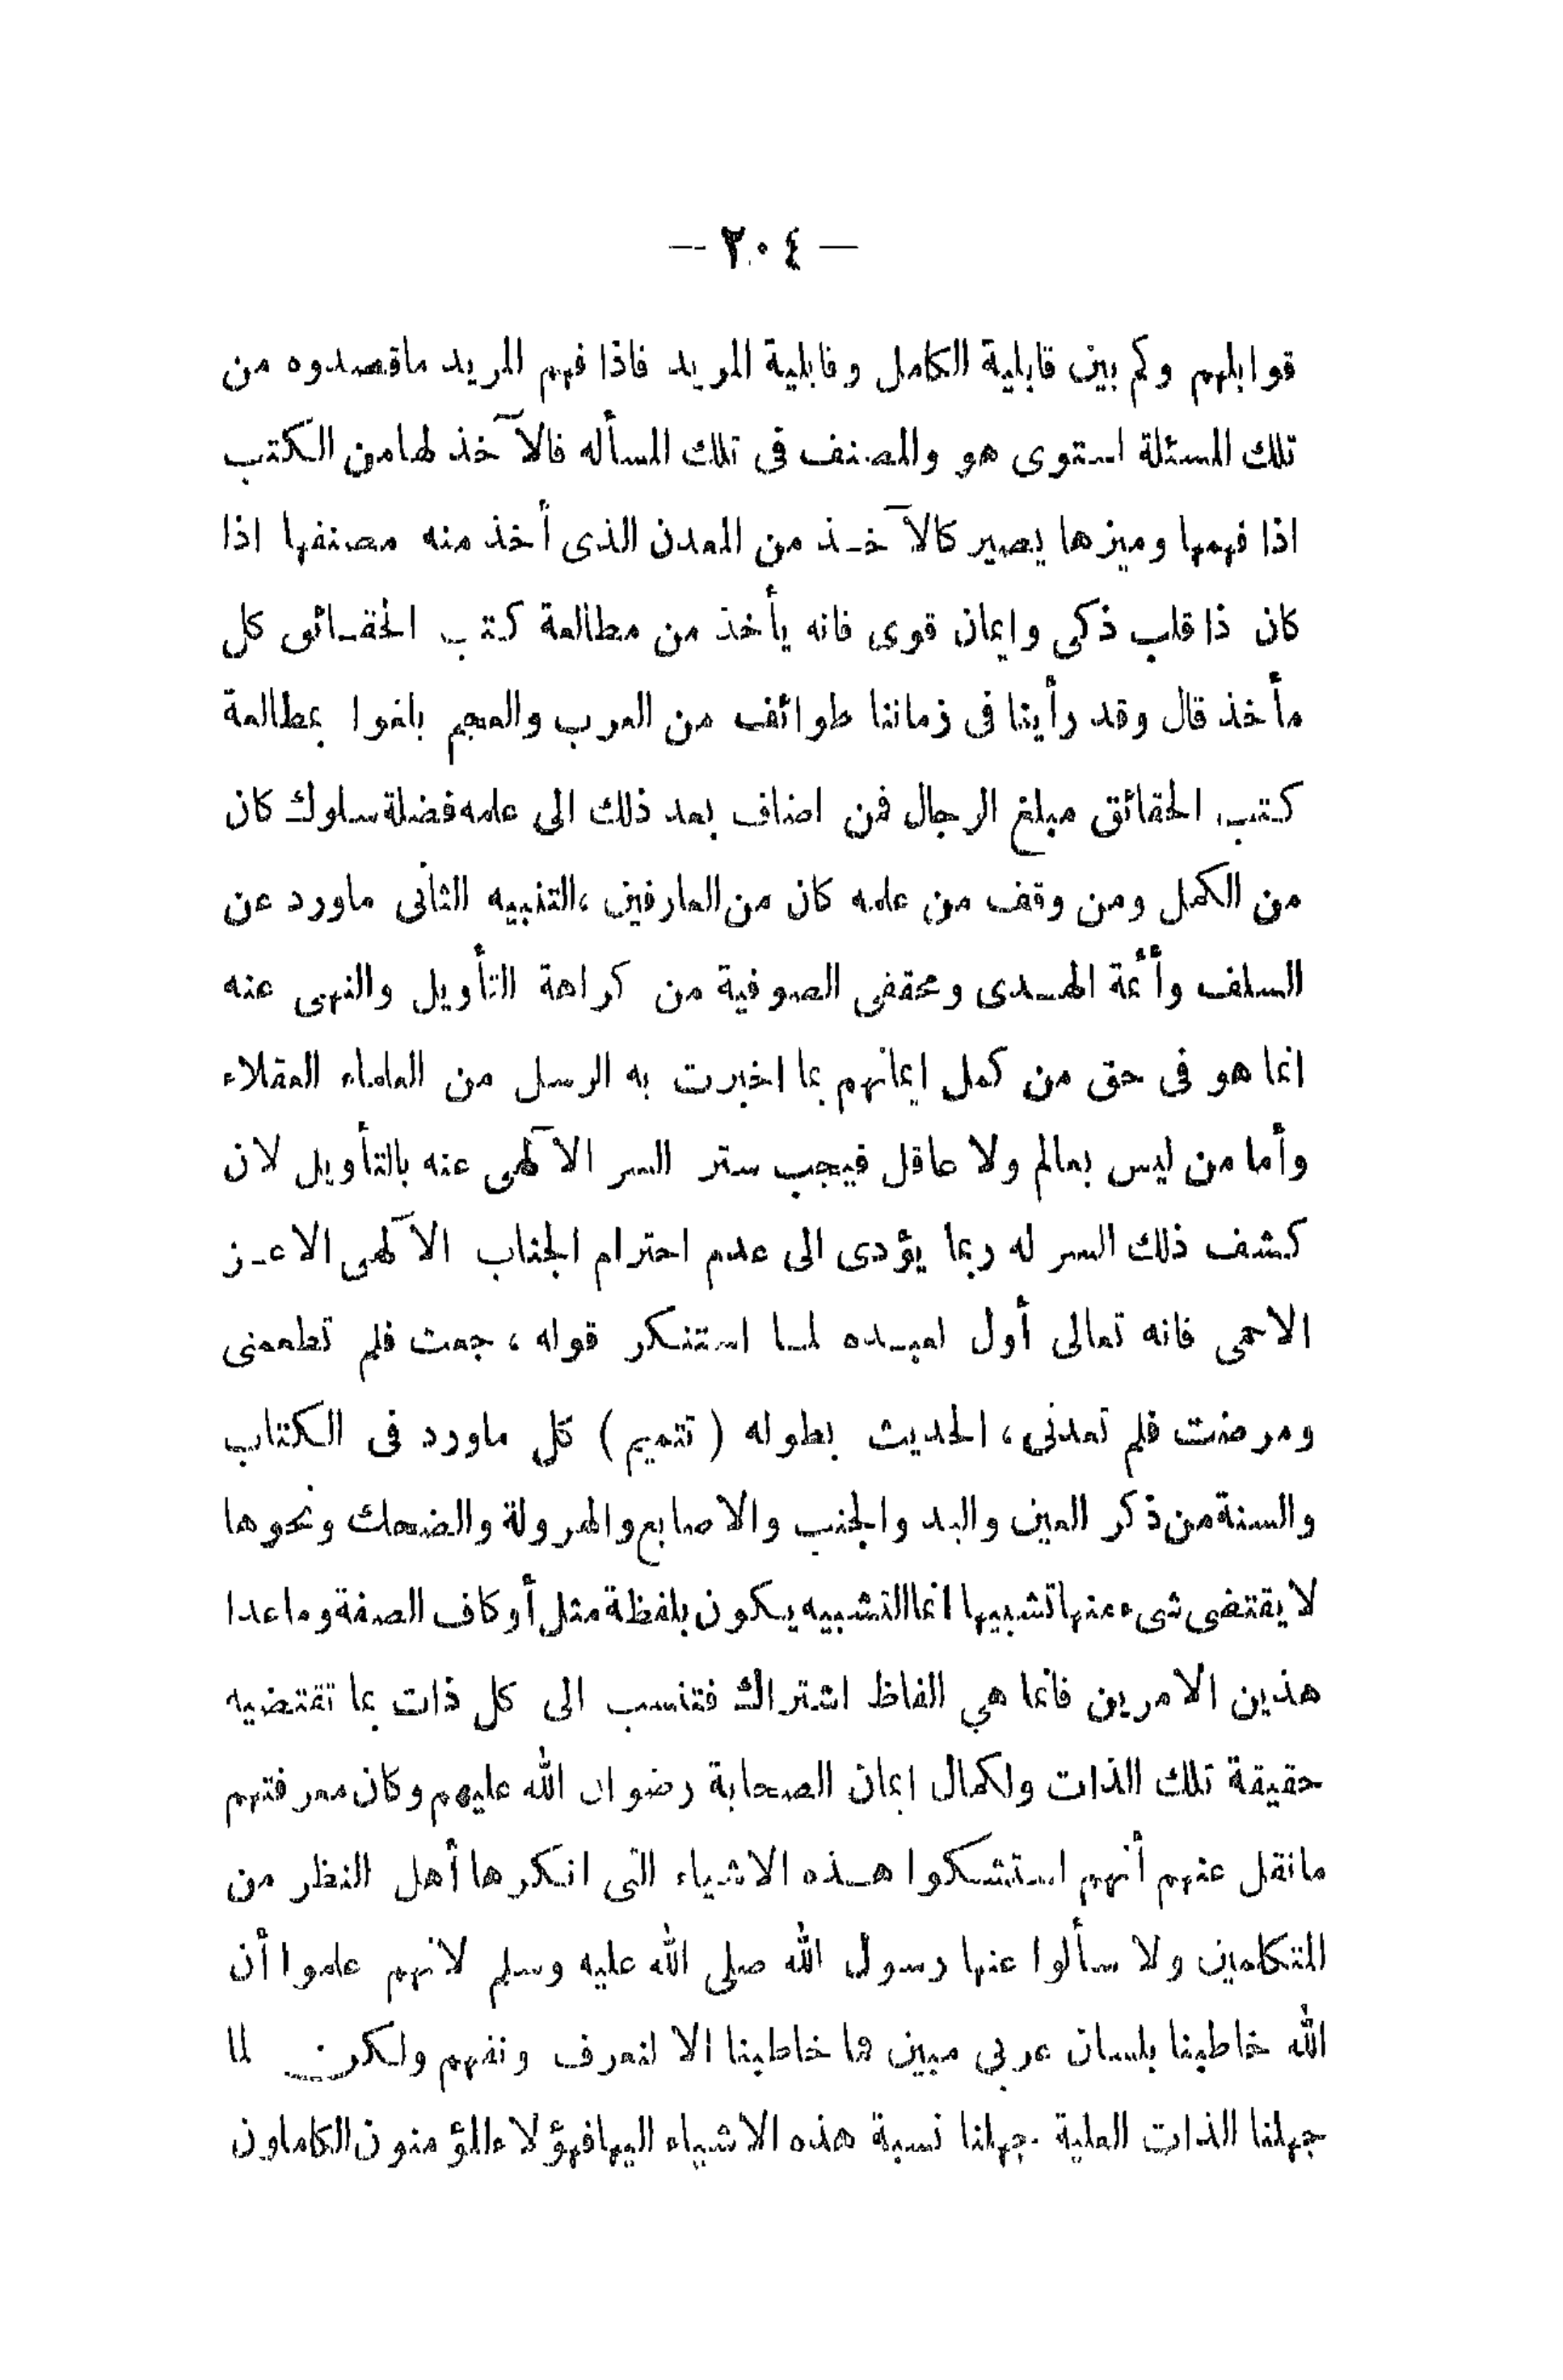 — ٢٠٤ —
قوابلهم وكم بين قابلية الكامل وقابلية المريد فاذا فهم المريد ماقصدوه من
تلك المسئلة استوى هو والمصنف فى تلك المسأله فالآخذ لها من الكتب
اذا فهمها وميزها يصير كالآخذ من المعدن الذى أخذ منه مصنفها اذا
كان ذا قلب ذكى وايمان قوى فانه يأخذ من مطالعة كتب الحقائق كل
مأخذ قال وقد رأينا فى زماننا طوائف من العرب والعجم بلغوا بمطالعة
كتب الحقائق مبلغ الرجال فمن اضاف بعد ذلك الى علمه فضلة سلوك كان
من الكمل ومن وقف من علمه كان من العارفين ،التنبيه الثانى ماورد عن
السلف وأئمة الهدى ومحققى الصوفية من كراهة التأويل والنهى عنه
انما هو فى حق من كمل ايمانهم بما اخبرت به الرسل من العلماء العقلاء
وأما من ليس بعالم ولا عاقل فيجب ستر السر الآلهى عنه بالتأويل لان
كشف ذلك السر له ربما يؤدى الى عدم احترام الجناب الآلهى الاعز
الاحمى فانه تعالى أول لعبده لما استنكر قوله ، جعت فلم تطعمنى
ومرضت فلم تعدنى ، الحديث بطوله ( تتميم ) كل ماورد فى الكتاب
والسنة من ذكر العين واليد والجنب والاصابع والهرولة والضحك ونحوها
لا يقتضى شىء منها تشبيها انما التشبيه يكون بلفظة مثل أو كاف الصفة وما عدا
هذين الامرين فانما هي الفاظ اشتراك فتنسب الى كل ذات بما تقتضيه
حقيقة تلك الذات ولكمال ايمان الصحابة رضوان الله عليهم وكان معرفتهم
مانقل عنهم أنهم استشكوا هذه الاشياء التى انكرها أهل النظر من
المتكلمين ولا سألوا عنها رسول الله صلى الله عليه وسلم لانهم علموا أن
الله خاطبنا بلسان عربى مبين فما خاطبنا الا لنعرف ونفهم ولكن لما
جهلنا الذات العلية جهلنا نسبة هذه الاشياء اليها فهؤلاء المؤمنون الكاملون